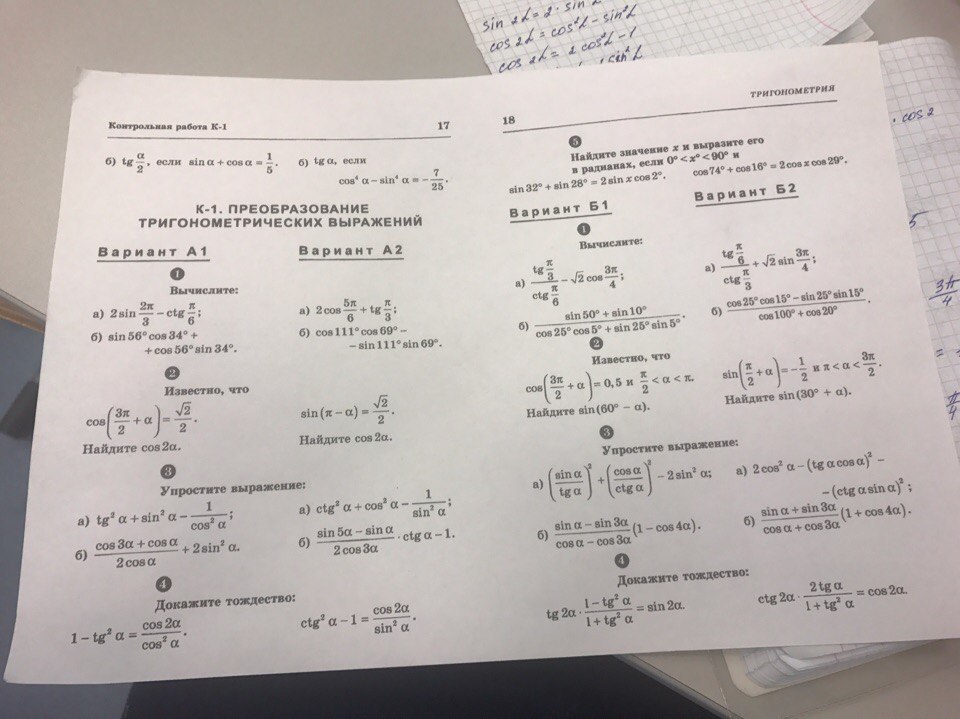 sin 2α = 2 · sin α
cos 2α = cos²α – sin²α
cos 2α = 2 cos²α – 1
sin²α
· cos 2
5
3π/4
π/4
Контрольная работа К-1 17
б) tg α/2, если sin α + cos α = 1/5.
б) tg α, если
cos⁴ α – sin⁴ α = –7/25.
К-1. ПРЕОБРАЗОВАНИЕ
ТРИГОНОМЕТРИЧЕСКИХ ВЫРАЖЕНИЙ
Вариант А1
Вариант А2
1
Вычислите:
а) 2 sin 2π/3 – ctg π/6;
б) sin 56° cos 34° +
+ cos 56° sin 34°.
а) 2 cos 5π/6 + tg π/3;
б) cos 111° cos 69° –
– sin 111° sin 69°.
2
Известно, что
cos(3π/2 + α) = √2/2.
Найдите cos 2α.
sin(π – α) = √2/2.
Найдите cos 2α.
3
Упростите выражение:
а) tg² α + sin² α – 1/cos² α;
б) (cos 3α + cos α)/(2 cos α) + 2 sin² α.
а) ctg² α + cos² α – 1/sin² α;
б) (sin 5α – sin α)/(2 cos 3α) · ctg α – 1.
4
Докажите тождество:
1 – tg² α = cos 2α/cos² α.
ctg² α – 1 = cos 2α/sin² α.
18 ТРИГОНОМЕТРИЯ
5
Найдите значение x и выразите его
в радианах, если 0° < x° < 90° и
sin 32° + sin 28° = 2 sin x cos 2°.
cos 74° + cos 16° = 2 cos x cos 29°.
Вариант Б1
Вариант Б2
1
Вычислите:
а) (tg π/3)/(ctg π/6) – √2 cos 3π/4;
б) (sin 50° + sin 10°)/(cos 25° cos 5° + sin 25° sin 5°).
а) (tg π/6)/(ctg π/3) + √2 sin 3π/4;
б) (cos 25° cos 15° – sin 25° sin 15°)/(cos 100° + cos 20°).
2
Известно, что
cos(3π/2 + α) = 0,5 и π/2 < α < π.
Найдите sin (60° – α).
sin(π/2 + α) = –1/2 и π < α < 3π/2.
Найдите sin (30° + α).
3
Упростите выражение:
а) (sin α/tg α)² + (cos α/ctg α)² – 2 sin² α;
б) (sin α – sin 3α)/(cos α – cos 3α) (1 – cos 4α).
а) 2 cos² α – (tg α cos α)² –
– (ctg α sin α)²;
б) (sin α + sin 3α)/(cos α + cos 3α) (1 + cos 4α).
4
Докажите тождество:
tg 2α · (1 – tg² α)/(1 + tg² α) = sin 2α.
ctg 2α · (2 tg α)/(1 + tg² α) = cos 2α.